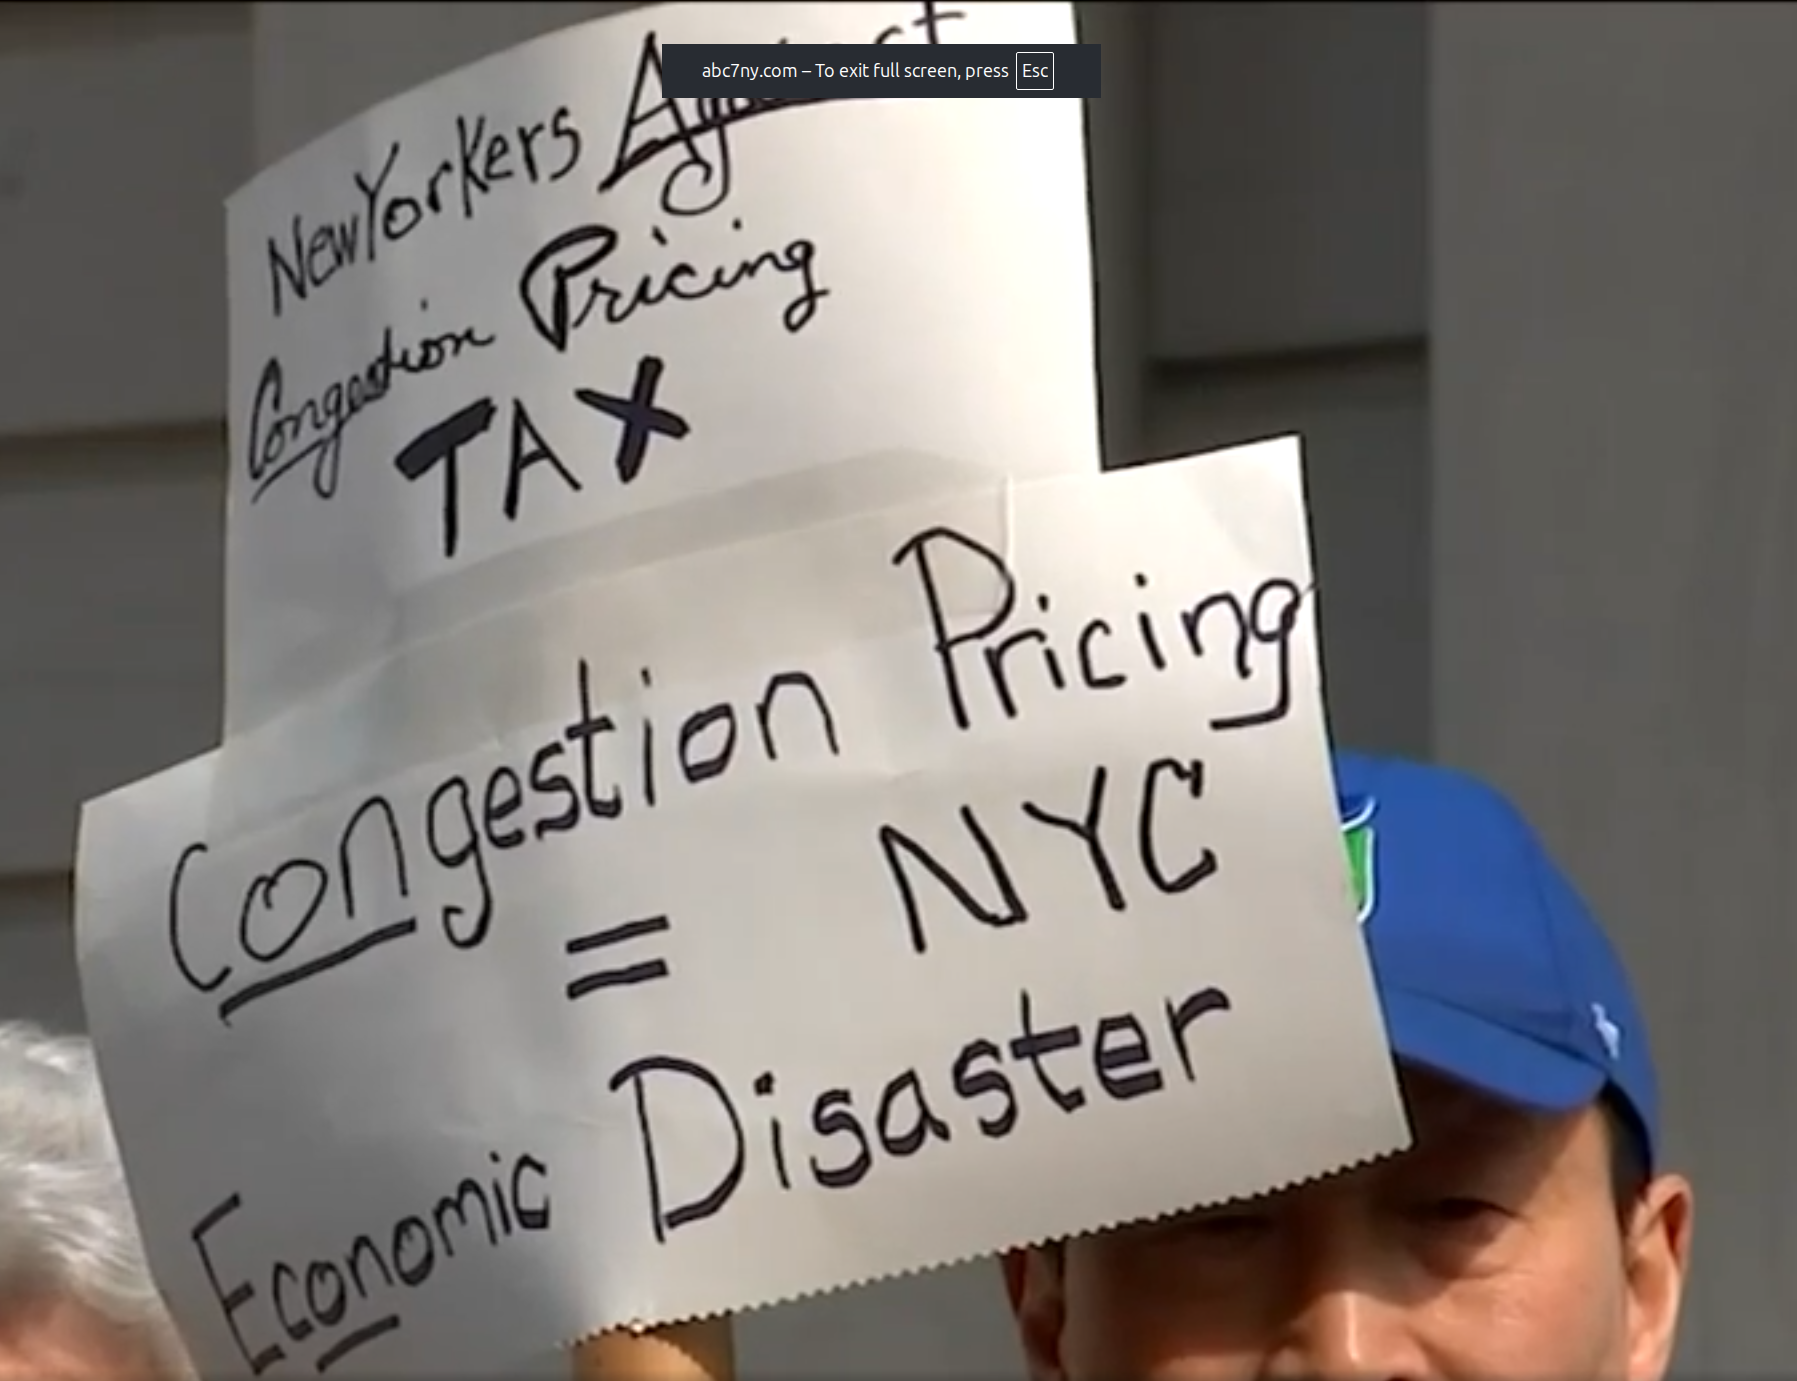 abc7ny.com – To exit full screen, press Esc
NewYorkers Against
Congestion Pricing
TAX
Congestion Pricing
= NYC
Economic Disaster